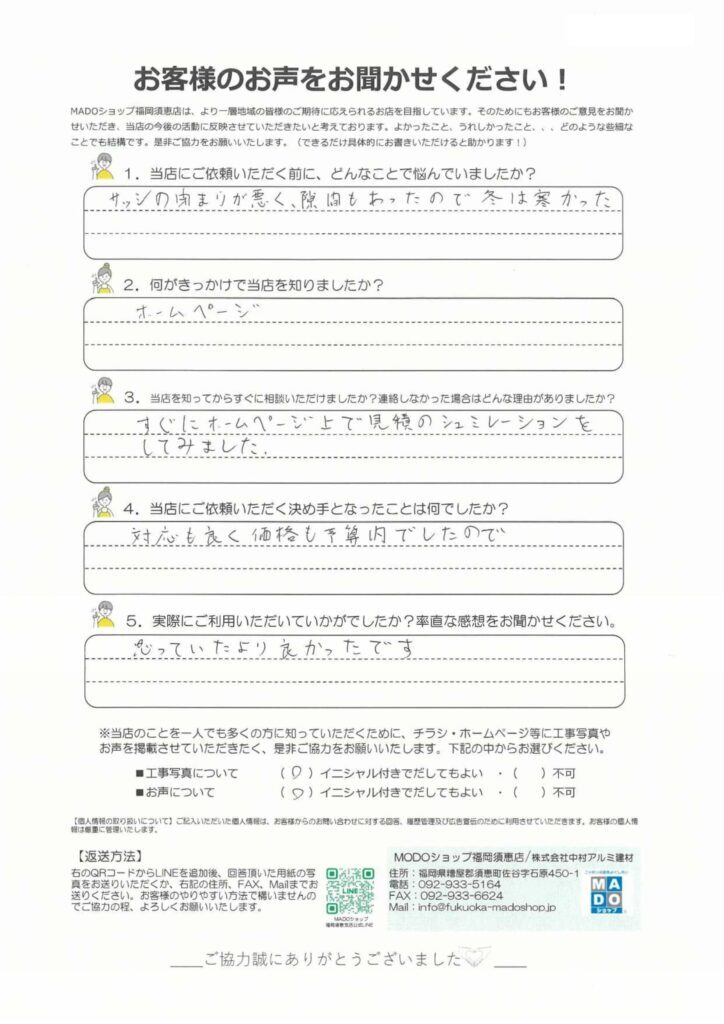 お客様のお声をお聞かせください！
MADOショップ福岡須恵店は、より一層地域の皆様のご期待に応えられるお店を目指しています。そのためにもお客様のご意見をお聞か
せいただき、当店の今後の活動に反映させていただきたいと考えております。よかったこと、うれしかったこと、、、どのような些細な
ことでも結構です。是非ご協力をお願いいたします。（できるだけ具体的にお書きいただけると助かります！）
1．当店にご依頼いただく前に、どんなことで悩んでいましたか？
サッシの閉まりが悪く、隙間もあったので冬は寒かった
2．何がきっかけで当店を知りましたか？
ホームページ
3．当店を知ってからすぐに相談いただけましたか？連絡しなかった場合はどんな理由がありましたか？
すぐにホームページ上で見積のシュミレーションを
してみました.
4．当店にご依頼いただく決め手となったことは何でしたか？
対応も良く価格も予算内でしたので
5．実際にご利用いただいていかがでしたか？率直な感想をお聞かせください。
思っていたより良かったです
※当店のことを一人でも多くの方に知っていただくために、チラシ・ホームページ等に工事写真や
お声を掲載させていただきたく、是非ご協力をお願いいたします。下記の中からお選びください。
■工事写真について （○）イニシャル付きでだしてもよい ・（ ）不可
■お声について （○）イニシャル付きでだしてもよい ・（ ）不可
【個人情報の取り扱いについて】ご記入いただいた個人情報は、お客様からのお問い合わせに対する回答、履歴管理及び広告宣伝のために利用させていただきます。お客様の個人情
報は厳重に管理いたします。
【返送方法】
右のQRコードからLINEを追加後、回答頂いた用紙の写
真をお送りいただくか、右記の住所、FAX、Mailまでお
送りください。お客様のやりやすい方法で構いませんの
でご協力の程、よろしくお願いいたします。
LINE
MADOショップ
福岡須恵支店公式LINE
MODOショップ福岡須恵店/株式会社中村アルミ建材
住所：福岡県糟屋郡須恵町佐谷字石原450-1
電話：092-933-5164
FAX：092-933-6624
Mail：info@fukuoka-madoshop.jp
MA
DO
ショップ
ご協力誠にありがとうございました